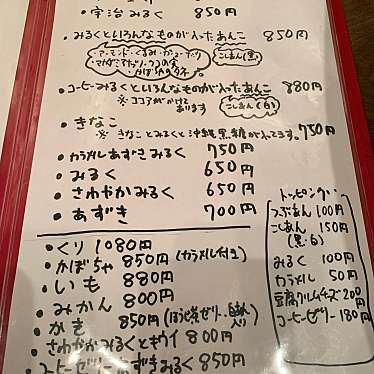 ・宇治みるく 850円
・みるくといろんなものが入ったあんこ 850円
・アーモンド・くるみ・カシューナッツ
・マカダミアナッツ・
・かぼちゃのタネ
こしあん(黒)
・コーヒーみるくといろんなものが入ったあんこ 880円
※ココアがかけてあります
こしあん(白)
・きなこ
※きなことみるくと沖縄黒糖が入ってます。 750円
・カラメルあずきみるく 750円
・みるく 650円
・さわやかみるく 650円
・あずき 700円
・くり 1080円
・かぼちゃ 850円(カラメル付き)
・いも 880円
・みかん 800円
・かき 850円(ほうじ茶ゼリー・白あん入り)
・さわやかみるくとキウイ 800円
・コーヒーゼリーあずきみるく 850円
トッピング
つぶあん 100円
こしあん 150円
(黒・白)
みるく 100円
カラメル 50円
豆腐クリームチーズ 200円
コーヒーゼリー 180円